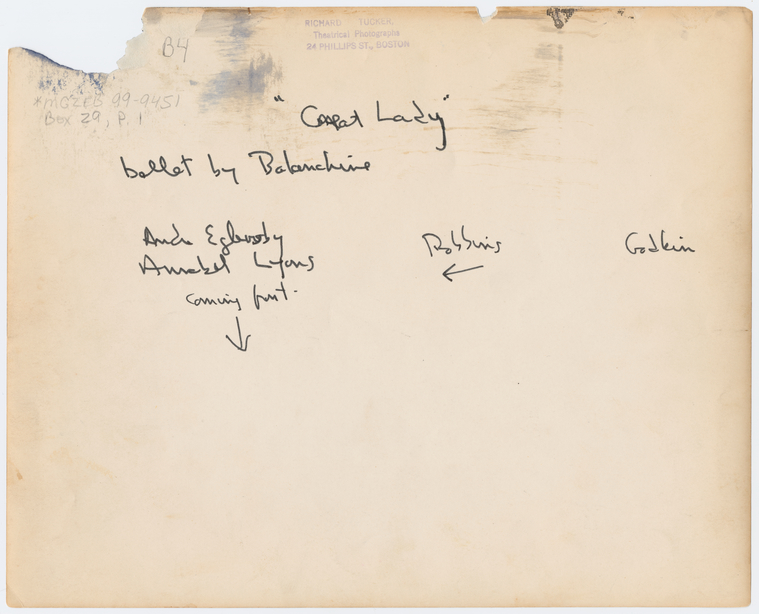 B4
RICHARD TUCKER,
Theatrical Photographs
24 PHILLIPS ST., BOSTON
*MGZEB 99-9451
Box 29, P. 1
"Great Lady"
ballet by Balanchine
Andre Eglevsky
Annabel Lyons
coming front.
Robbins
Godkin